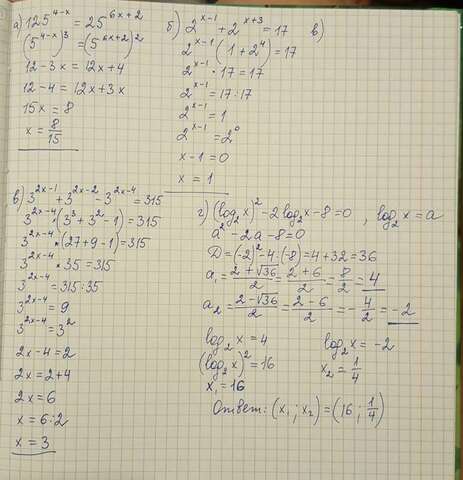 а) 125^(4-x) = 25^(6x+2)
(5^(4-x))^3 = (5^(6x+2))^2
12-3x = 12x+4
12-4 = 12x+3x
15x = 8
x = 8/15
б) 2^(x-1) + 2^(x+3) = 17
2^(x-1) (1+2^4) = 17
2^(x-1) · 17 = 17
2^(x-1) = 17:17
2^(x-1) = 1
2^(x-1) = 2^0
x-1 = 0
x = 1
в)
в) 3^(2x-1) + 3^(2x-2) - 3^(2x-4) = 315
3^(2x-4) · (3^3 + 3^2 - 1) = 315
3^(2x-4) · (27+9-1) = 315
3^(2x-4) · 35 = 315
3^(2x-4) = 315:35
3^(2x-4) = 9
3^(2x-4) = 3^2
2x-4 = 2
2x = 2+4
2x = 6
x = 6:2
x = 3
г) (log₂x)^2 - 2log₂x - 8 = 0, log₂x = a
a^2 - 2a - 8 = 0
D = (-2)^2 - 4·(-8) = 4+32 = 36
a₁ = (2+√36)/2 = (2+6)/2 = 8/2 = 4
a₂ = (2-√36)/2 = (2-6)/2 = -4/2 = -2
log₂x = 4 log₂x = -2
(log₂x)^2 = 16 x₂ = 1/4
x₁ = 16
Ответ: (x₁; x₂) = (16; 1/4)